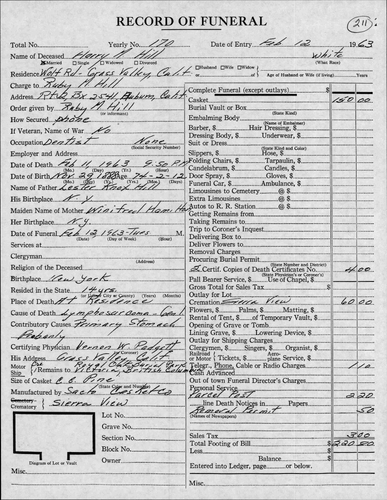 RECORD OF FUNERAL
211
Total No. Yearly No. 170 Date of Entry Feb 12 1963
Name of Deceased Homer M Hill White
Married Single Widowed Divorced Husband Wife Widow (What Race)
Residence Wolf Rd - Grass Valley, Calif. or of Age of Husband or Wife (if living) Years
Charge to Ruby M Hill
Address Rt 2 Box 2541 Auburn, Calif
Order given by Ruby M. Hill
(or informant)
How Secured phone
If Veteran, Name of War No
Occupation Dentist None
(Social Security Number)
Employer and Address
Date of Death Feb 11, 1963 9:50 P.M
(Mo.) (Day) (Yr.) (Hour)
Date of Birth Nov 29, 1888 Age 74-2-12
Name of Father Lester Knox Hill
His Birthplace N.Y
Maiden Name of Mother Winifred
Her Birthplace N.Y.
Date of Funeral Feb 12, 1963 - Tues M.
(Date) (Day of Week) (Hour)
Services at
Clergyman
(Address)
Religion of the Deceased
Birthplace New York
Resided in the State 14 yrs
(or City or County) (Years) (Months)
Place of Death At Residence
Cause of Death Lymphosarcoma -
Contributory Causes Primary Stomach
Probably
Certifying Physician Vernon W. Padgett
(or Coroner)
His Address Grass Valley Calif
Motor
Ship
Remains to Victoria British Columbia
Size of C 6 Pine
(State Color and Number)
Manufactured by Sacto Casket Co
Cemetery
Crematory Sierra View
Lot No.
Grave No.
Section No.
Block No.
Owner
Diagram of Lot or Vault
Misc.
Complete Funeral (except outlays) $
Casket 150 00
Burial Vault or Box
(State Kind)
Embalming Body
(Name of Embalmer)
Barber, $ Hair Dressing, $
Dressing Body, $ Underwear, $
Suit or Dress
(State Kind and Color)
Slippers, $ Hose, $
Folding Chairs, $ Tarpaulin, $
Candelabrum, $ Candles, $
Door Spray, $ Gloves, $
Funeral Car, $ Ambulance, $
Limousines to Cemetery @ $
Extra Limousines @ $
Autos to R. R. Station @ $
Getting Remains from
Taking Remains to
Trip to Coroner's Inquest
Delivering Box to
Deliver Flowers to
Removal Charges
Procuring Burial Permit
(State Number and District)
2 Certif. Copies of Death Certificates No. 4 00
(State Physician's or Coroner's)
Pall Bearer Service $ Use of Chapel, $
Gross Total for Sales Tax $
Outlay for Lot
Cremation Sierra View 60 00
Flowers, $ Palms, $ Matting, $
Rental of Tent, $ of Temporary Vault, $
Opening of Grave or Tomb
Lining Grave, $ Lowering Device, $
Outlay for Shipping Charges
Clergymen, $ Singers, $ Organist, $
Railroad or Motor Tickets, $ Aeroplane Service, $
Telegr., Phone, Cable or Radio Charges 1 10
Cash Advanced
Out of town Funeral Director's Charges
Personal Service
Parcel Post 2 20
line Death Notices in Papers
Removal Permit 50
(Names of Newspapers)
Sales Tax 3 00
Total Footing of Bill $ 220 80
Less
Balance $
Entered into Ledger, page or below.
Misc.